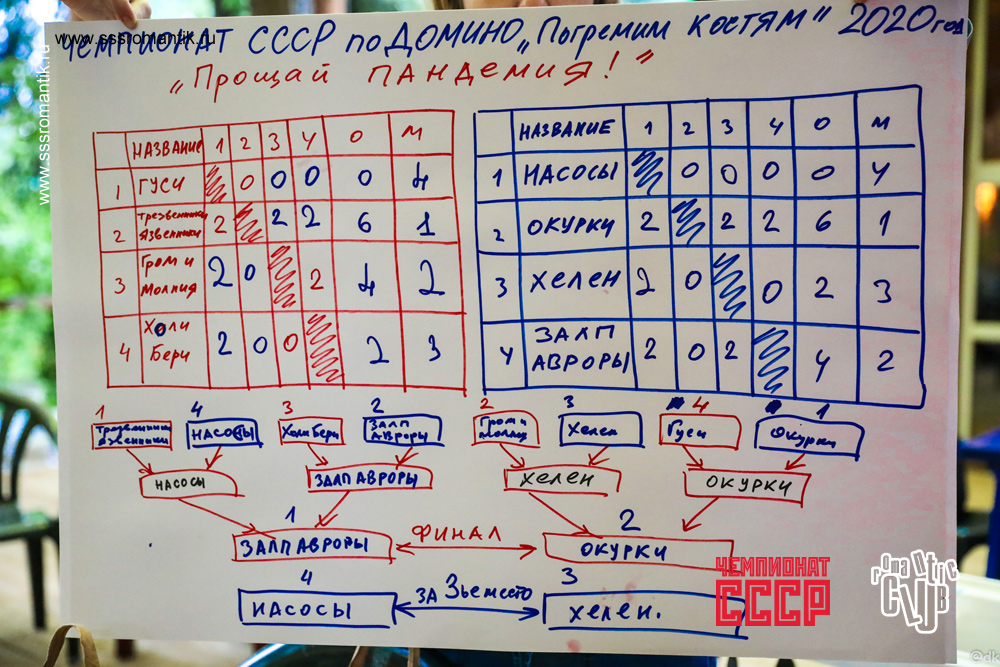 ЧЕМПИОНАТ СССР по ДОМИНО „Погремим костям" 2020 год
www.sssromantik.ru
www.sssromantik.ru
„Прощай ПАНДЕМИЯ!"
НАЗВАНИЕ 1 2 3 4 О М
1 ГУСИ 0 0 0 0 4
2 трезвенники язвенники 2 2 2 6 1
3 Гром и Молния 2 0 2 4 2
4 Холи Бери 2 0 0 2 3
НАЗВАНИЕ 1 2 3 4 О М
1 НАСОСЫ 0 0 0 0 4
2 ОКУРКИ 2 2 2 6 1
3 ХЕЛЕН 2 0 0 2 3
4 ЗАЛП АВРОРЫ 2 0 2 4 2
1 4 3 2 2 3 4 1
Трезвенники язвенники НАСОСЫ Холи Бери ЗАЛП АВРОРЫ Гром и молния Хелен Гуси Окурки
НАСОСЫ ЗАЛП АВРОРЫ ХЕЛЕН ОКУРКИ
1 2
ЗАЛП АВРОРЫ ФИНАЛ ОКУРКИ
4 3
НАСОСЫ ЗА 3ье место ХЕЛЕН.
ЧЕМПИОНАТ
СССР
romantic
CLUB